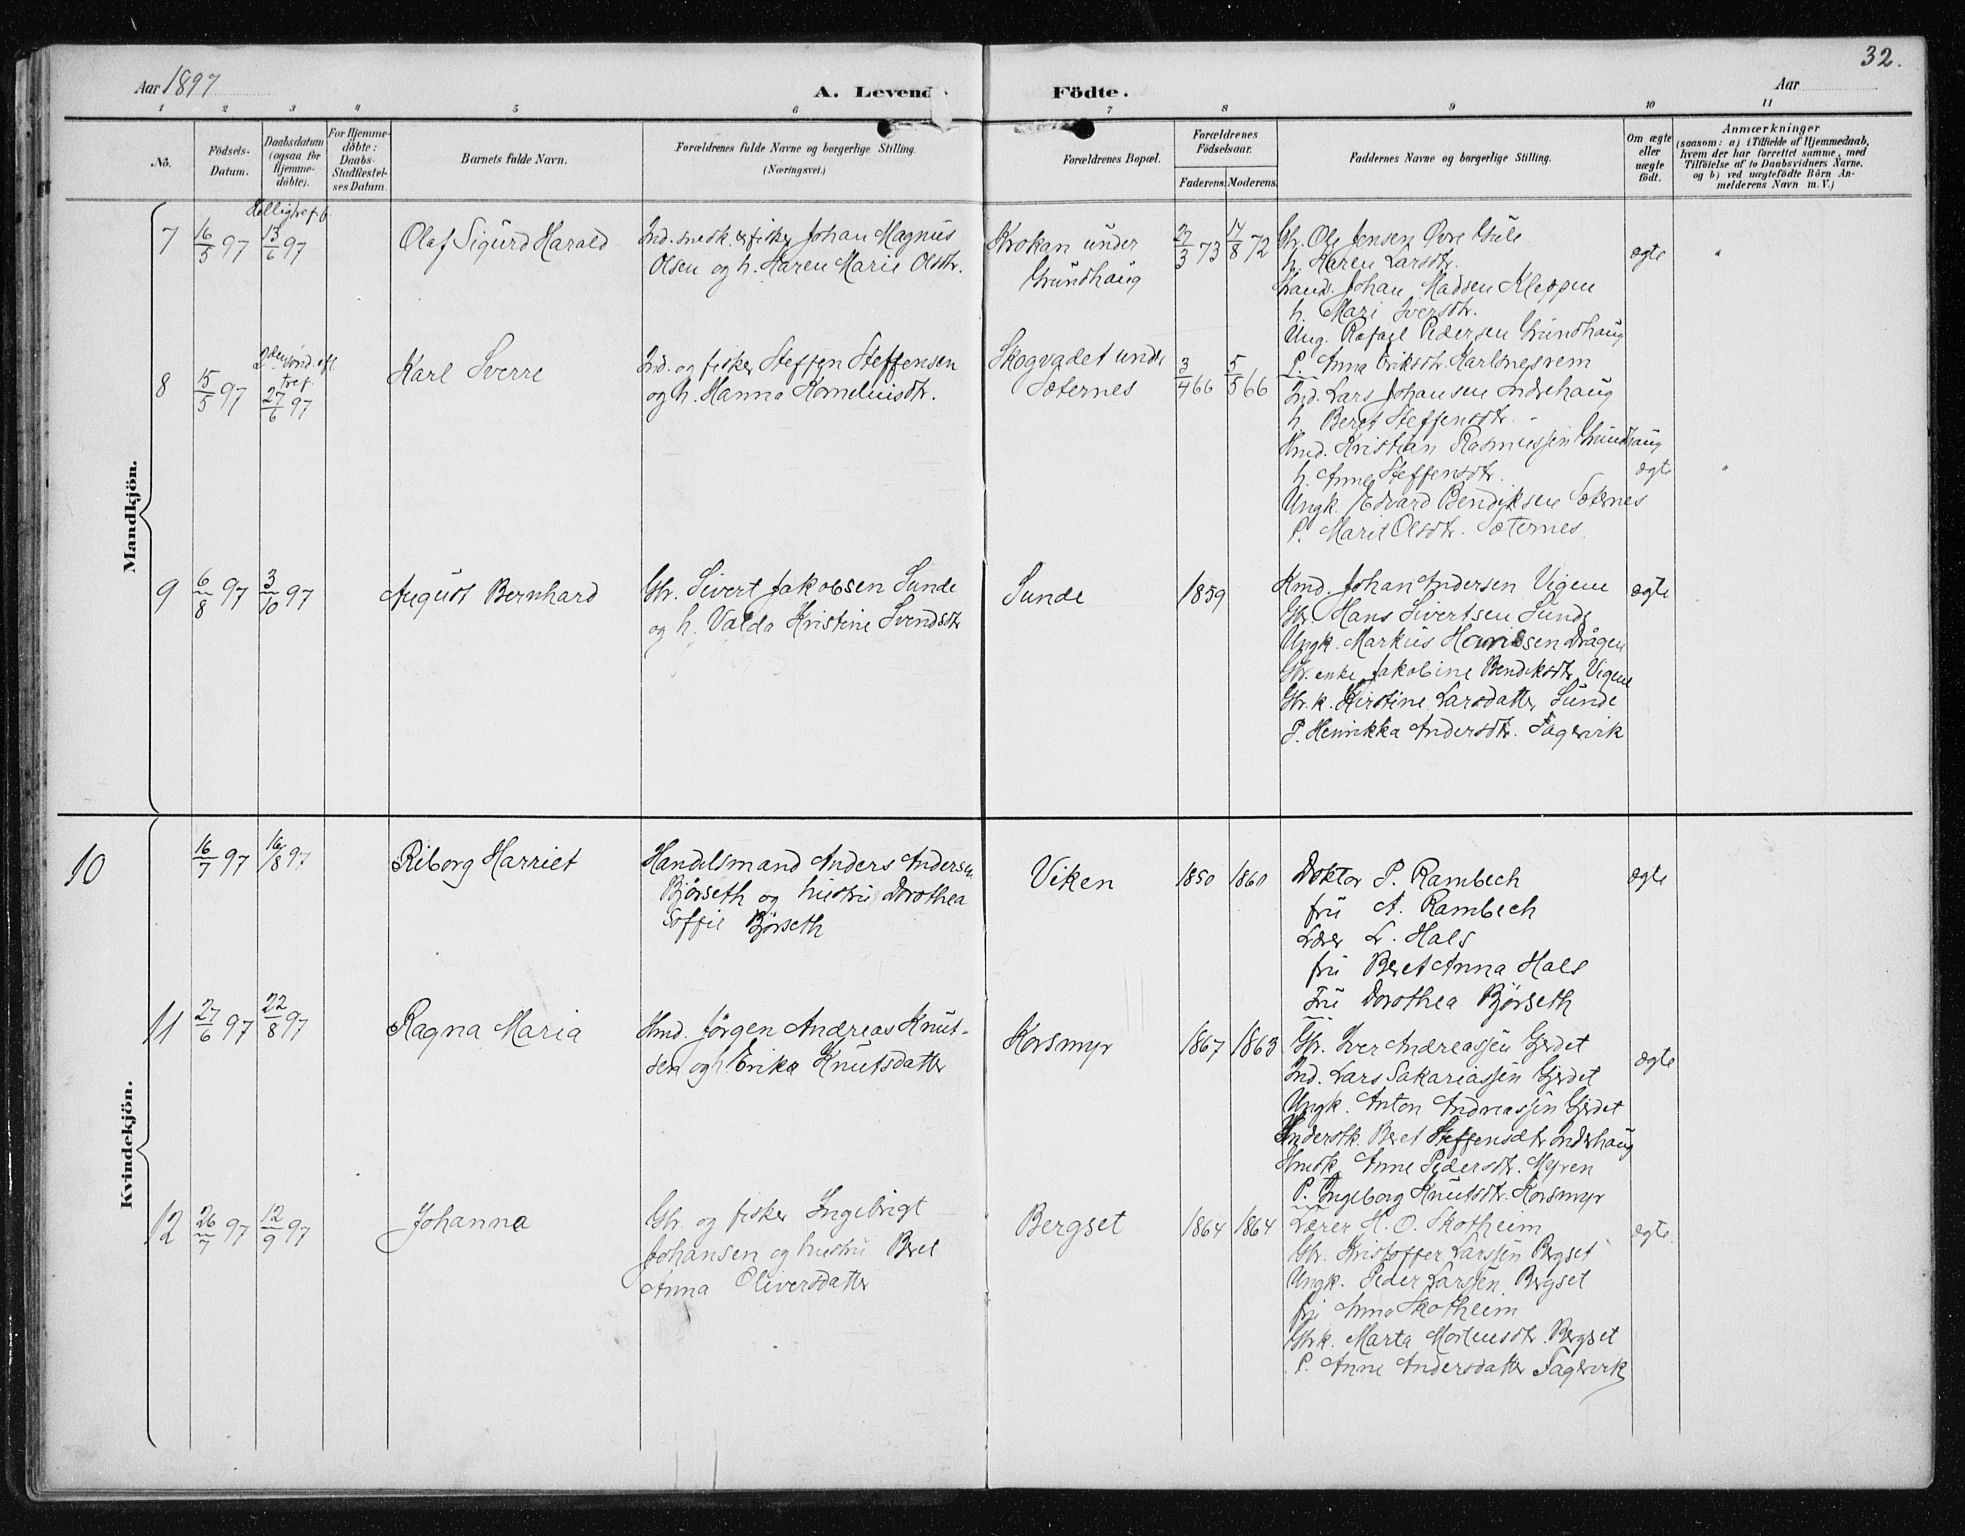 32.
Aar 1897
A. Levende Födte.
Aar
1 2 3 4 5 6 7 8 9 10 11
No.
Födsels-Datum.
Daabsdatum (ogsaa for Hjemmedöbte).
For Hjemmedöbte: Daabs-Stadfæstelses Datum.
Barnets fulde Navn.
Forældrenes fulde Navne og borgerlige Stilling. (Næringsvei.)
Forældrenes Bopæl.
Forældrenes Födselsaar.
Faderens. Moderens.
Faddernes Navne og borgerlige Stilling.
Om ægte eller uægte födt.
Anmærkninger
(saasom: a) i Tilfælde af Hjemmedaab,
hvem der har forrettet samme, med
Tilföielse af to Daabsvidners Navne.
og b) ved uægtefödte Börn An-
melderens Navn m. V.)
Mandkjön.
7 16/5 97 13/6 97 Olaf Sigurd Harald
Ind. snedk. & fisker Johan Magnus
Olsen og h. Karen Marie Olsdtr.
Krokan under
Grundhaug
27/3 73 14/8 72
Gbr. Ole Jensen Øvre Gule
h. Karen Larsdtr.
Johan Madsen Kleppen
h. Mari Iversdtr.
Ung. Rafael Pedersen Grundhaug
P. Anna Eriksdtr. Karlsnesvem
ægte "
8 15/5 97 2den sönd. eft. tref. 27/6 97 Karl Sverre
Ind. og fisker Steffen Steffensen
og h. Hanna Korneliusdtr.
Skogvadet under
Sæternes
3/4 66 5/5 66
Ind. Lars Johansen Indrehaug
h. Beret Steffensdtr.
Hmd. Kristian Rasmussen Grundhaug
h. Anne Steffensdtr.
Ungk. Edvard Bendiksen Sæternes
P. Marit Olsdtr. Sæternes.
ægte "
9 6/8 97 3/10 97 August Bernhard
Gbr. Sivert Jakobsen Sunde
og h. Valda Kristine Svendsdtr
Sunde
1859
Kmd. Johan Andersen Vigene
Gbr Hans Sivertsen Sunde
Ungk. Markus Hansen Drågen
Gbr. enke Jakobine Bendiksdtr. Vigene
Gbr. k. Kirstine Larsdatter Sunde
P. Henrikka Andersdtr. Fagervik
ægte
Kvindekjön.
10 16/7 97 16/8 97 Riborg Harriet
Handelsmand Anders Andersen
Bjørseth og hustru Dorothea
Soffie Bjørseth
Viken
1850 1860
Doktor P. Rambech
fru A. Rambech
Lærer L. Hals
fru Beret Anna Hals
Fru Dorothea Bjørseth
ægte
11 27/6 97 22/8 97 Ragna Maria
Hmd. Jørgen Andreas Knut-
sen og h Erika Knutsdatter
Korsmyr
1867 1863
Gbr. Iver Andreassen Gjerdet
Ind. Lars Sakariassen Gjerdet
Ungk. Anton Andreassen Gjerdet
Inderstk. Beret Steffensdtr Inderhaug
Hmdk. Anne Pedersdtr. Myren
P. Ingeborg Knutsdtr. Korsmyr
ægte
12 26/7 97 12/9 97 Johanna
Gbr. og fisker Ingebrigt
Johansen og hustru Beret
Anna Oliversdatter
Bergset
1864 1864
Lærer H. O. Skotheim
Gbr. Kristoffer Larssen Bergset
Ungk. Peder Larssen, Bergset
fru Anna Skotheim
Gbrk. Marta Mortensdtr. Bergset
P. Anne Andersdatter Fagervik
ægte.